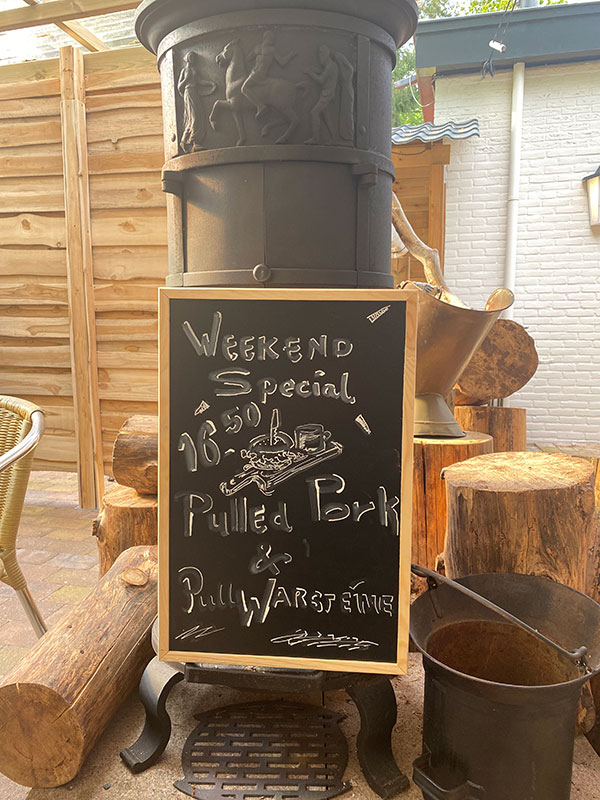 Weekend
Special
16.50
Pulled Pork
&
Pull Warsteine